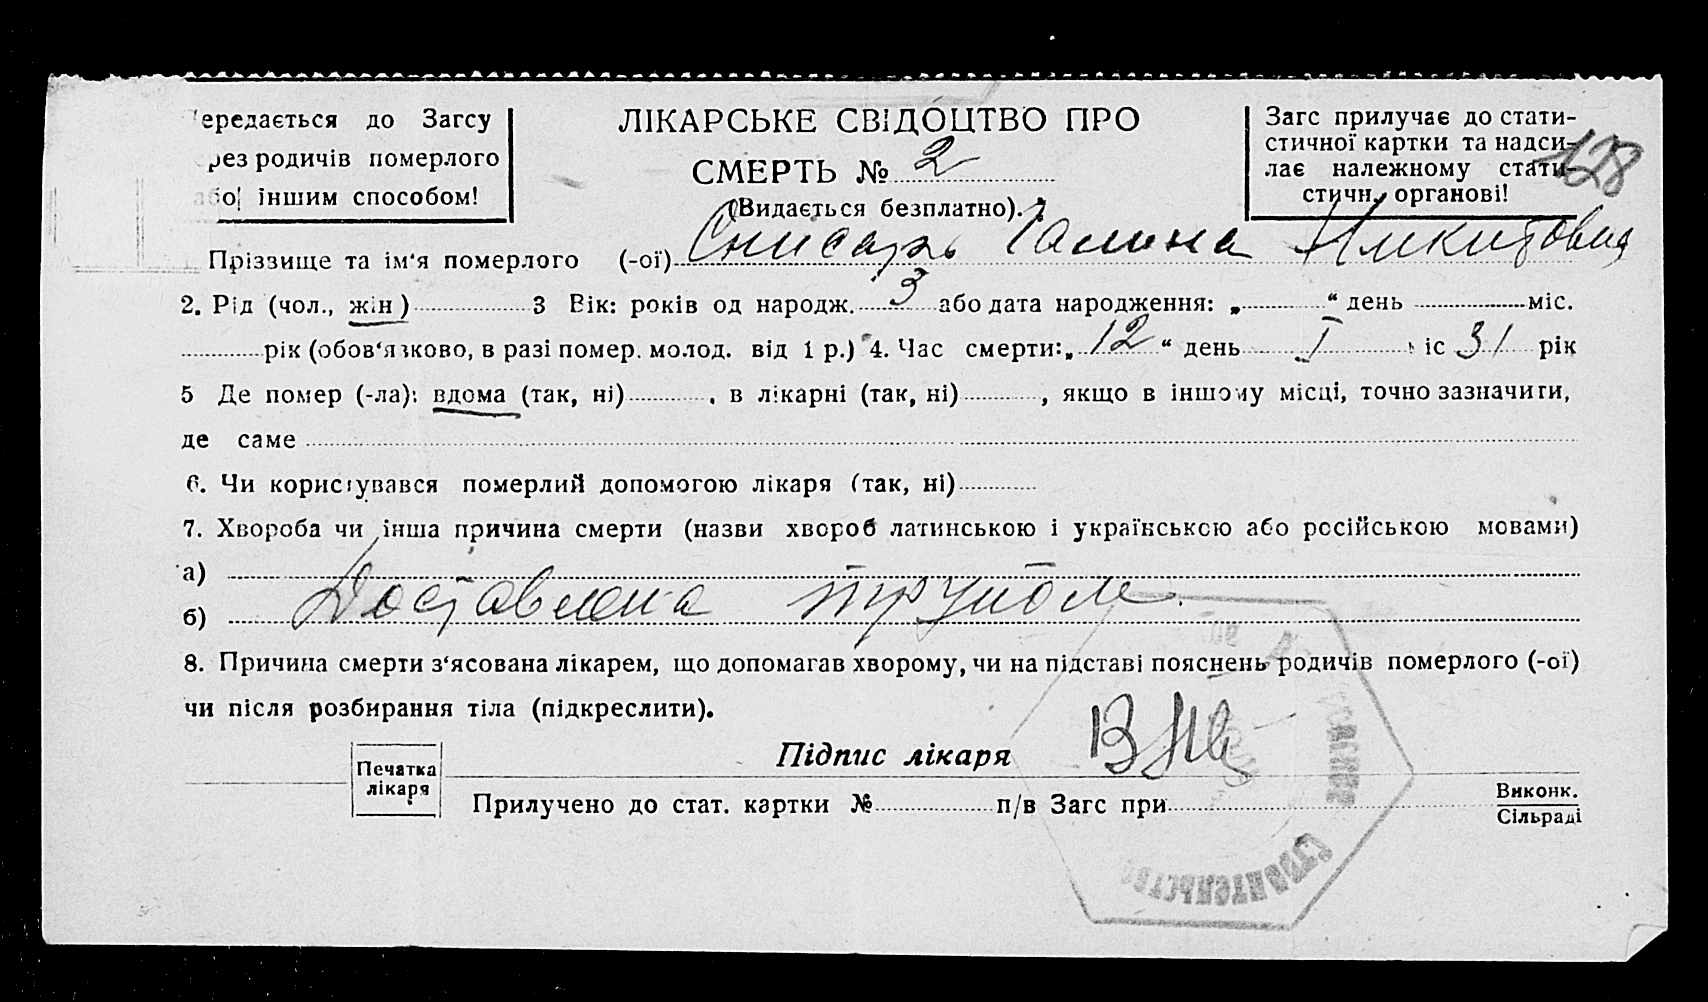 ередається до Загсу
рез родичів померлого
бо іншим способом!
ЛІКАРСЬКЕ СВІДОЦТВО ПРО
СМЕРТЬ № 2
(Видається безплатно).
Загс прилучає до стати-
стичної картки та надси-
лає належному стати-
стичн. органові!
128
Прізвище та ім'я померлого (-ої) Снисарь Галина Никитовна
2. Рід (чол., жін) 3 Вік: років од народж. 3 або дата народження: „ “ день міс.
рік (обов'язково, в разі помер. молод. від 1 р.) 4. Час смерти: „ 12 “ день I іс 31 рік
5 Де помер (-ла): вдома (так, ні) , в лікарні (так, ні) , якщо в іншому місці, точно зазначити,
де саме
6. Чи користувався померлий допомогою лікаря (так, ні)
7. Хвороба чи інша причина смерти (назви хвороб латинською і українською або російською мовами)
а)
б) Доставлена трупом.
8. Причина смерти з'ясована лікарем, що допомагав хворому, чи на підставі пояснень родичів померлого (-ої)
чи після розбирання тіла (підкреслити).
Підпис лікаря
Печатка
лікаря
Прилучено до стат. картки № п/в Загс при
Виконк.
Сільраді